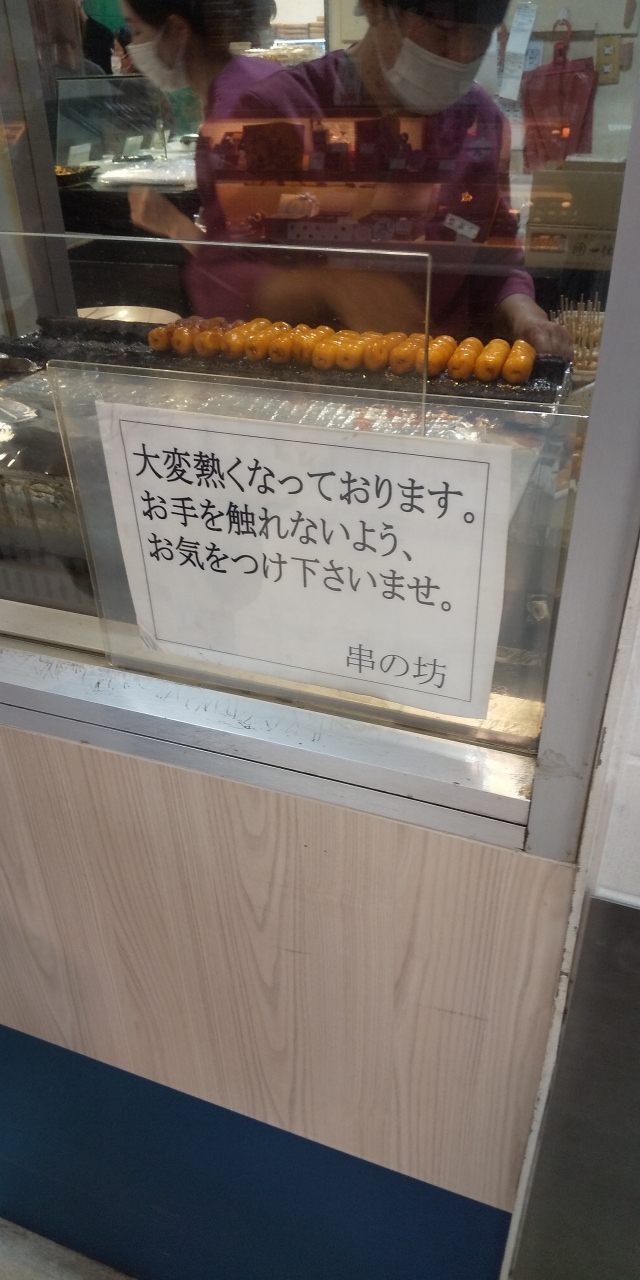 大変熱くなっております。
お手を触れないよう、
お気をつけ下さいませ。
串の坊